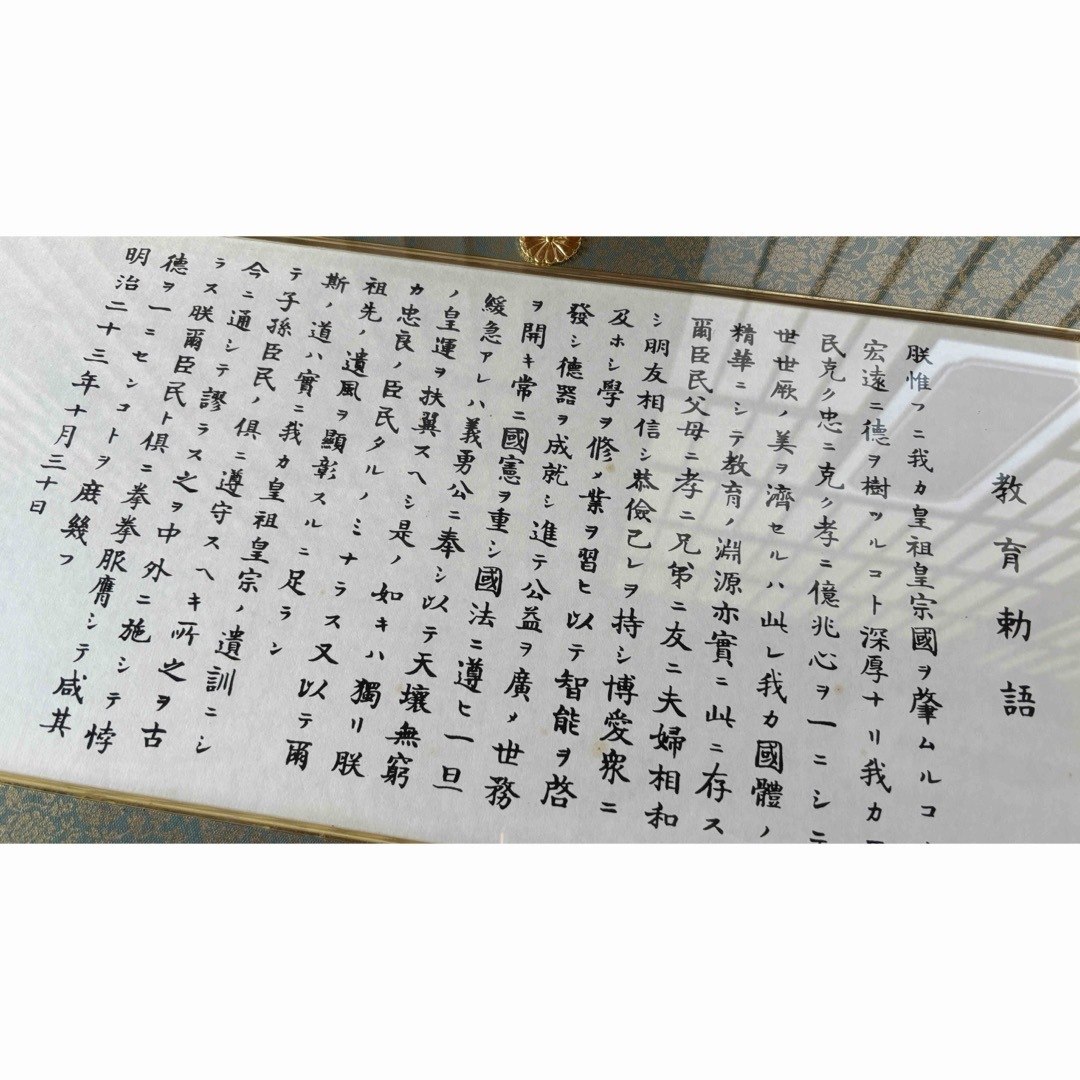 教育勅語
朕惟フニ我カ皇祖皇宗國ヲ肇ムルコ
宏遠ニ德ヲ樹ツルコト深厚ナリ我カ
民克ク忠ニ克ク孝ニ億兆心ヲ一ニシテ
世世厥ノ美ヲ濟セルハ此レ我カ國體ノ
精華ニシテ教育ノ淵源亦實ニ此ニ存ス
爾臣民父母ニ孝ニ兄弟ニ友ニ夫婦相和
シ朋友相信シ恭儉己レヲ持シ博愛衆ニ
及ホシ學ヲ修メ業ヲ習ヒ以テ智能ヲ啓
發シ德器ヲ成就シ進テ公益ヲ廣メ世務
ヲ開キ常ニ國憲ヲ重シ國法ニ遵ヒ一旦
緩急アレハ義勇公ニ奉シ以テ天壤無窮
ノ皇運ヲ扶翼スヘシ是ノ如キハ獨リ朕
カ忠良ノ臣民タルノミナラス又以テ爾
祖先ノ遺風ヲ顯彰スルニ足ラン
斯ノ道ハ實ニ我カ皇祖皇宗ノ遺訓ニシ
テ子孫臣民ノ俱ニ遵守スヘキ所之ヲ古
今ニ通シテ謬ラス之ヲ中外ニ施シテ悖
ラス朕爾臣民ト俱ニ拳拳服膺シテ咸其
德ヲ一ニセンコトヲ庶幾フ
明治二十三年十月三十日